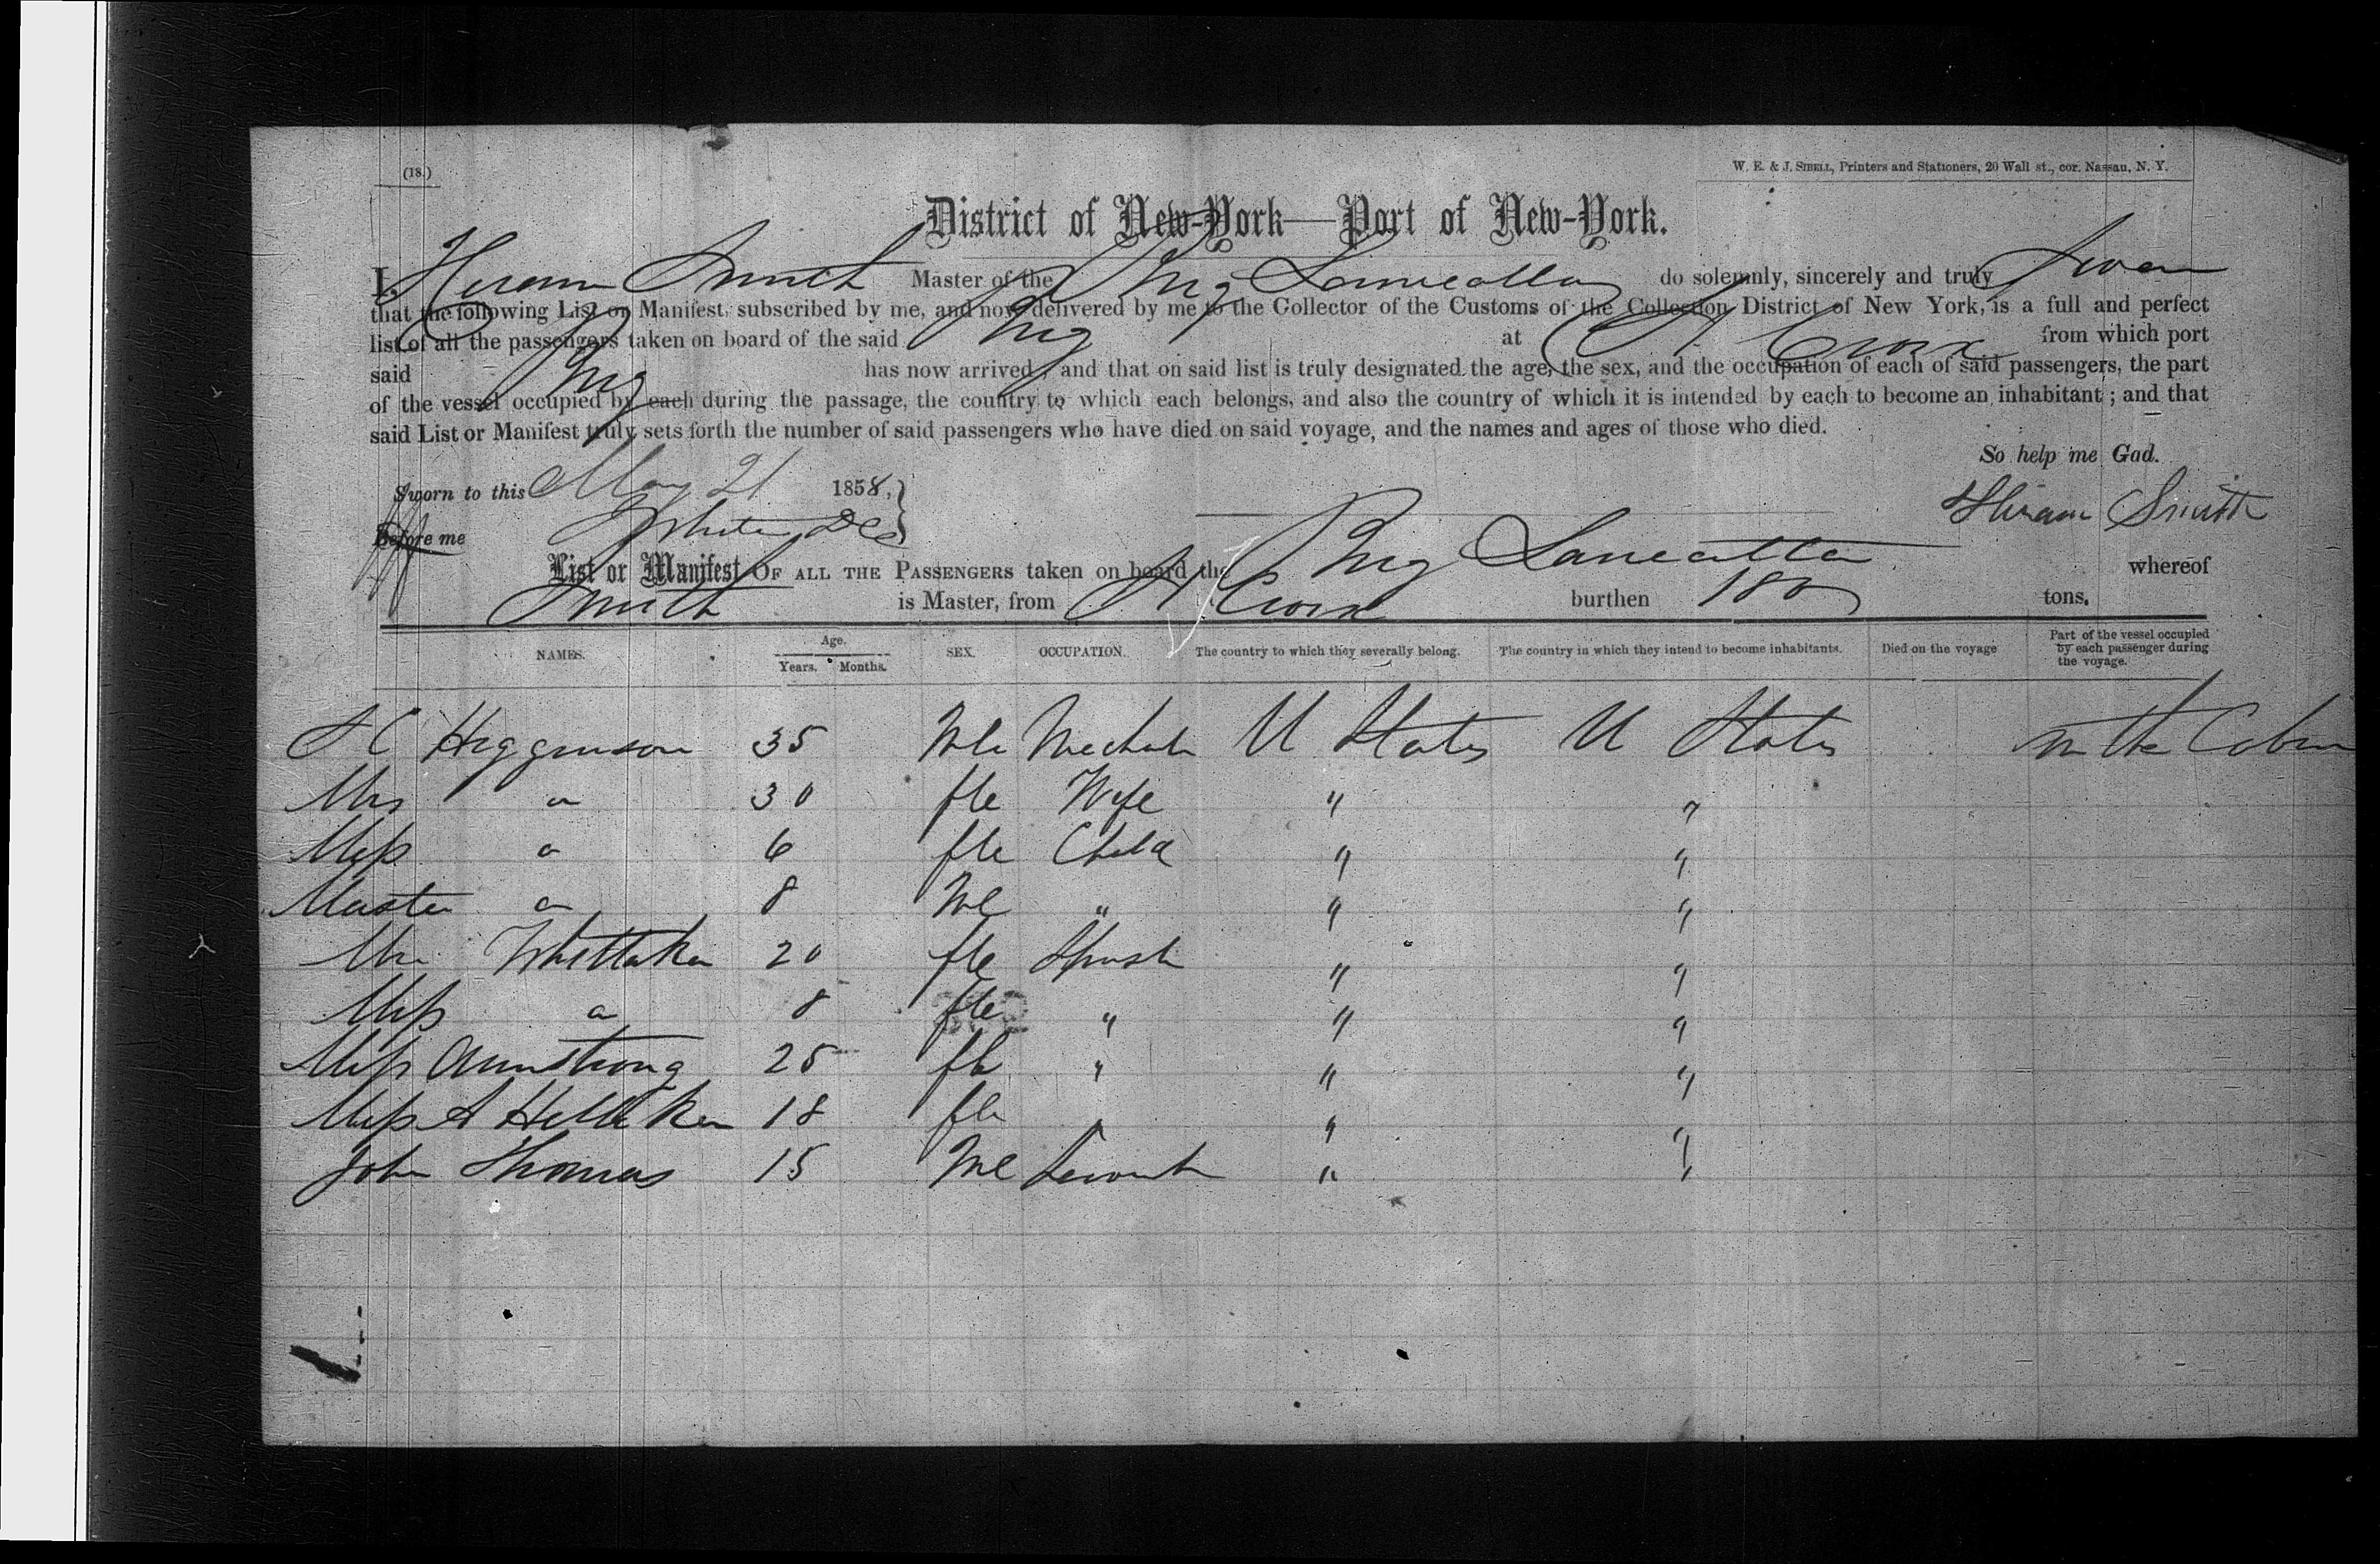 (18.)
W. E. & J. SIBELL, Printers and Stationers, 20 Wall st., cor. Nassau, N. Y.
District of New-York—Port of New-York.
I, Hiram Smith Master of the Brig do solemnly, sincerely and truly Swear
that the following List or Manifest, subscribed by me, and now delivered by me to the Collector of the Customs of the Collection District of New York, is a full and perfect
list of all the passengers taken on board of the said Brig at St Croix from which port
said Brig has now arrived; and that on said list is truly designated the age, the sex, and the occupation of each of said passengers, the part
of the vessel occupied by each during the passage, the country to which each belongs, and also the country of which it is intended by each to become an inhabitant; and that
said List or Manifest truly sets forth the number of said passengers who have died on said voyage, and the names and ages of those who died.
So help me God.
Sworn to this May 21 1858,
Hiram Smith
Before me White
List or Manifest OF ALL THE PASSENGERS taken on board the Brig whereof
Smith is Master, from St Croix burthen 180 tons.
NAMES. Age. Years. Months. SEX. OCCUPATION. The country to which they severally belong. The country in which they intend to become inhabitants. Died on the voyage Part of the vessel occupied by each passenger during the voyage.
Higginson 35 Mle U States U States in the Cabin
Mrs " 30 fle Wife " "
Miss " 6 fle Child " "
Master " 8 Ml " " "
Whittaker 20 fle " "
Miss " 8 fle " " "
Miss Armstrong 25 fle " " "
Miss A 18 fle " " "
John Thomas 15 Ml Servant " "